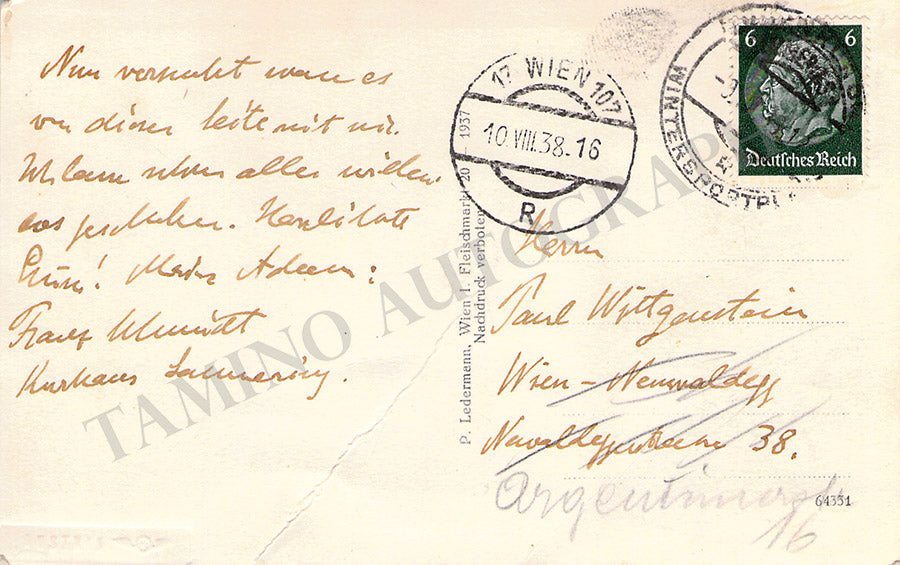 Nun versucht man es
von dieser Seite mit mir.
schon alles
geschehen. Herzlichste
Grüße! Meine Adresse:
Franz Schmidt
Kurhaus Semmering.
P. Ledermann, Wien I, Fleischmarkt 20 — 1937
Nachdruck verboten
17 WIEN 107
10.VIII.38.16
R
WINTERSPORTPL
6 6
Deutsches Reich
Herrn
Paul Wittgenstein
Wien-Neuwaldegg
38.
Argentinierstr
16
64351
TAMINO AUTOGRAPHS